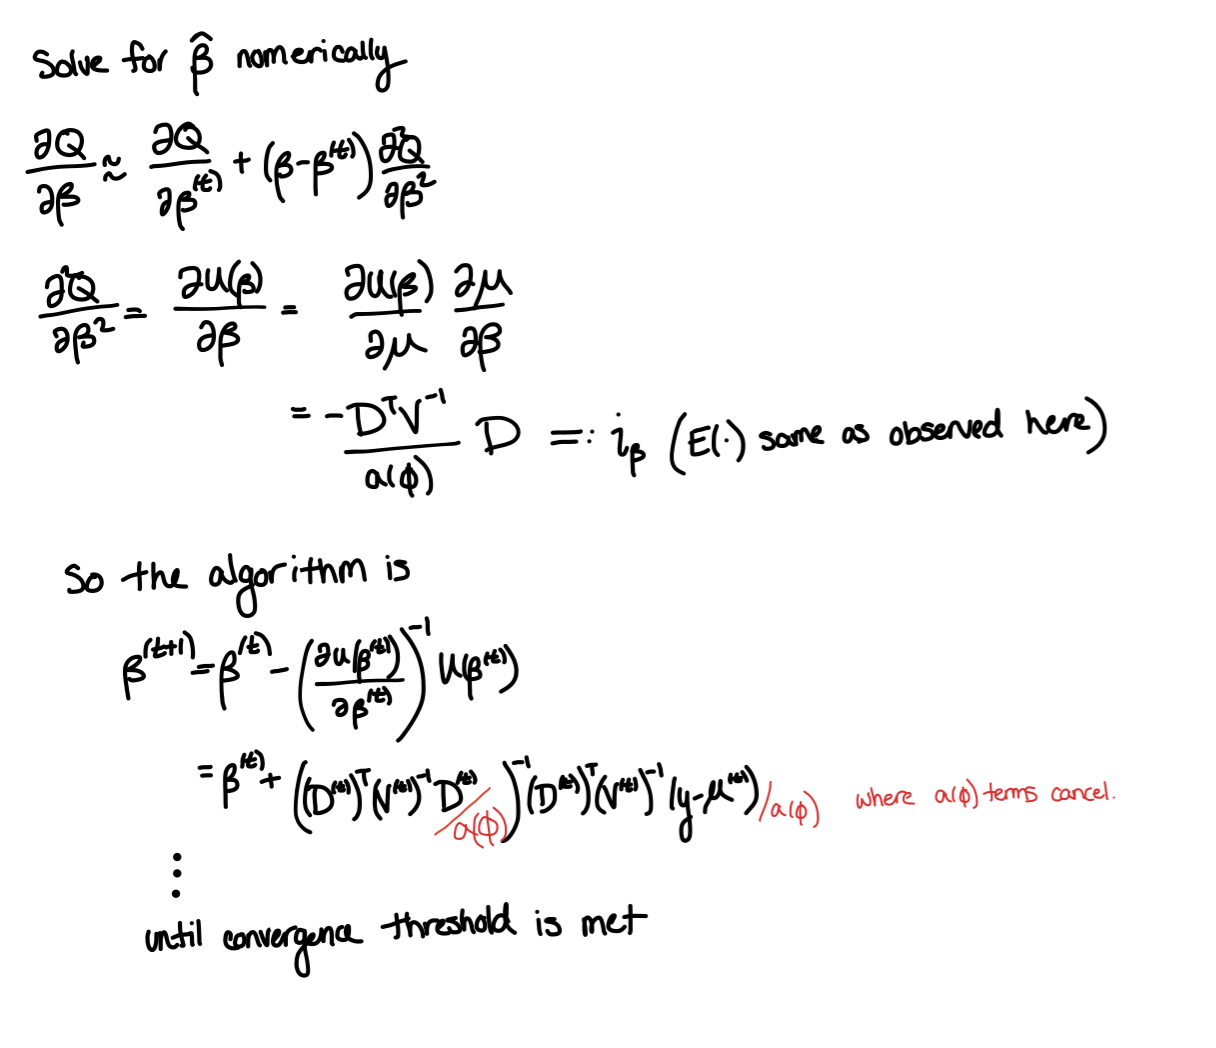 Solve for β̂ numerically
∂Q/∂β ≈ ∂Q/∂β^(t) + (β-β^(t)) ∂²Q/∂β²
∂²Q/∂β² = ∂U(β)/∂β = ∂U(β)/∂μ ∂μ/∂β
= -DᵀV⁻¹/a(ϕ) D =: i_β (E(·) same as observed here)
So the algorithm is
β^(t+1) = β^(t) - (∂U(β^(t))/∂β^(t))⁻¹ U(β^(t))
= β^(t) + ((D^(t))ᵀ (V^(t))⁻¹ D^(t)/a(ϕ))⁻¹ (D^(t))ᵀ (V^(t))⁻¹ (y-μ^(t))/a(ϕ) where a(ϕ) terms cancel.
⋮
until convergence threshold is met